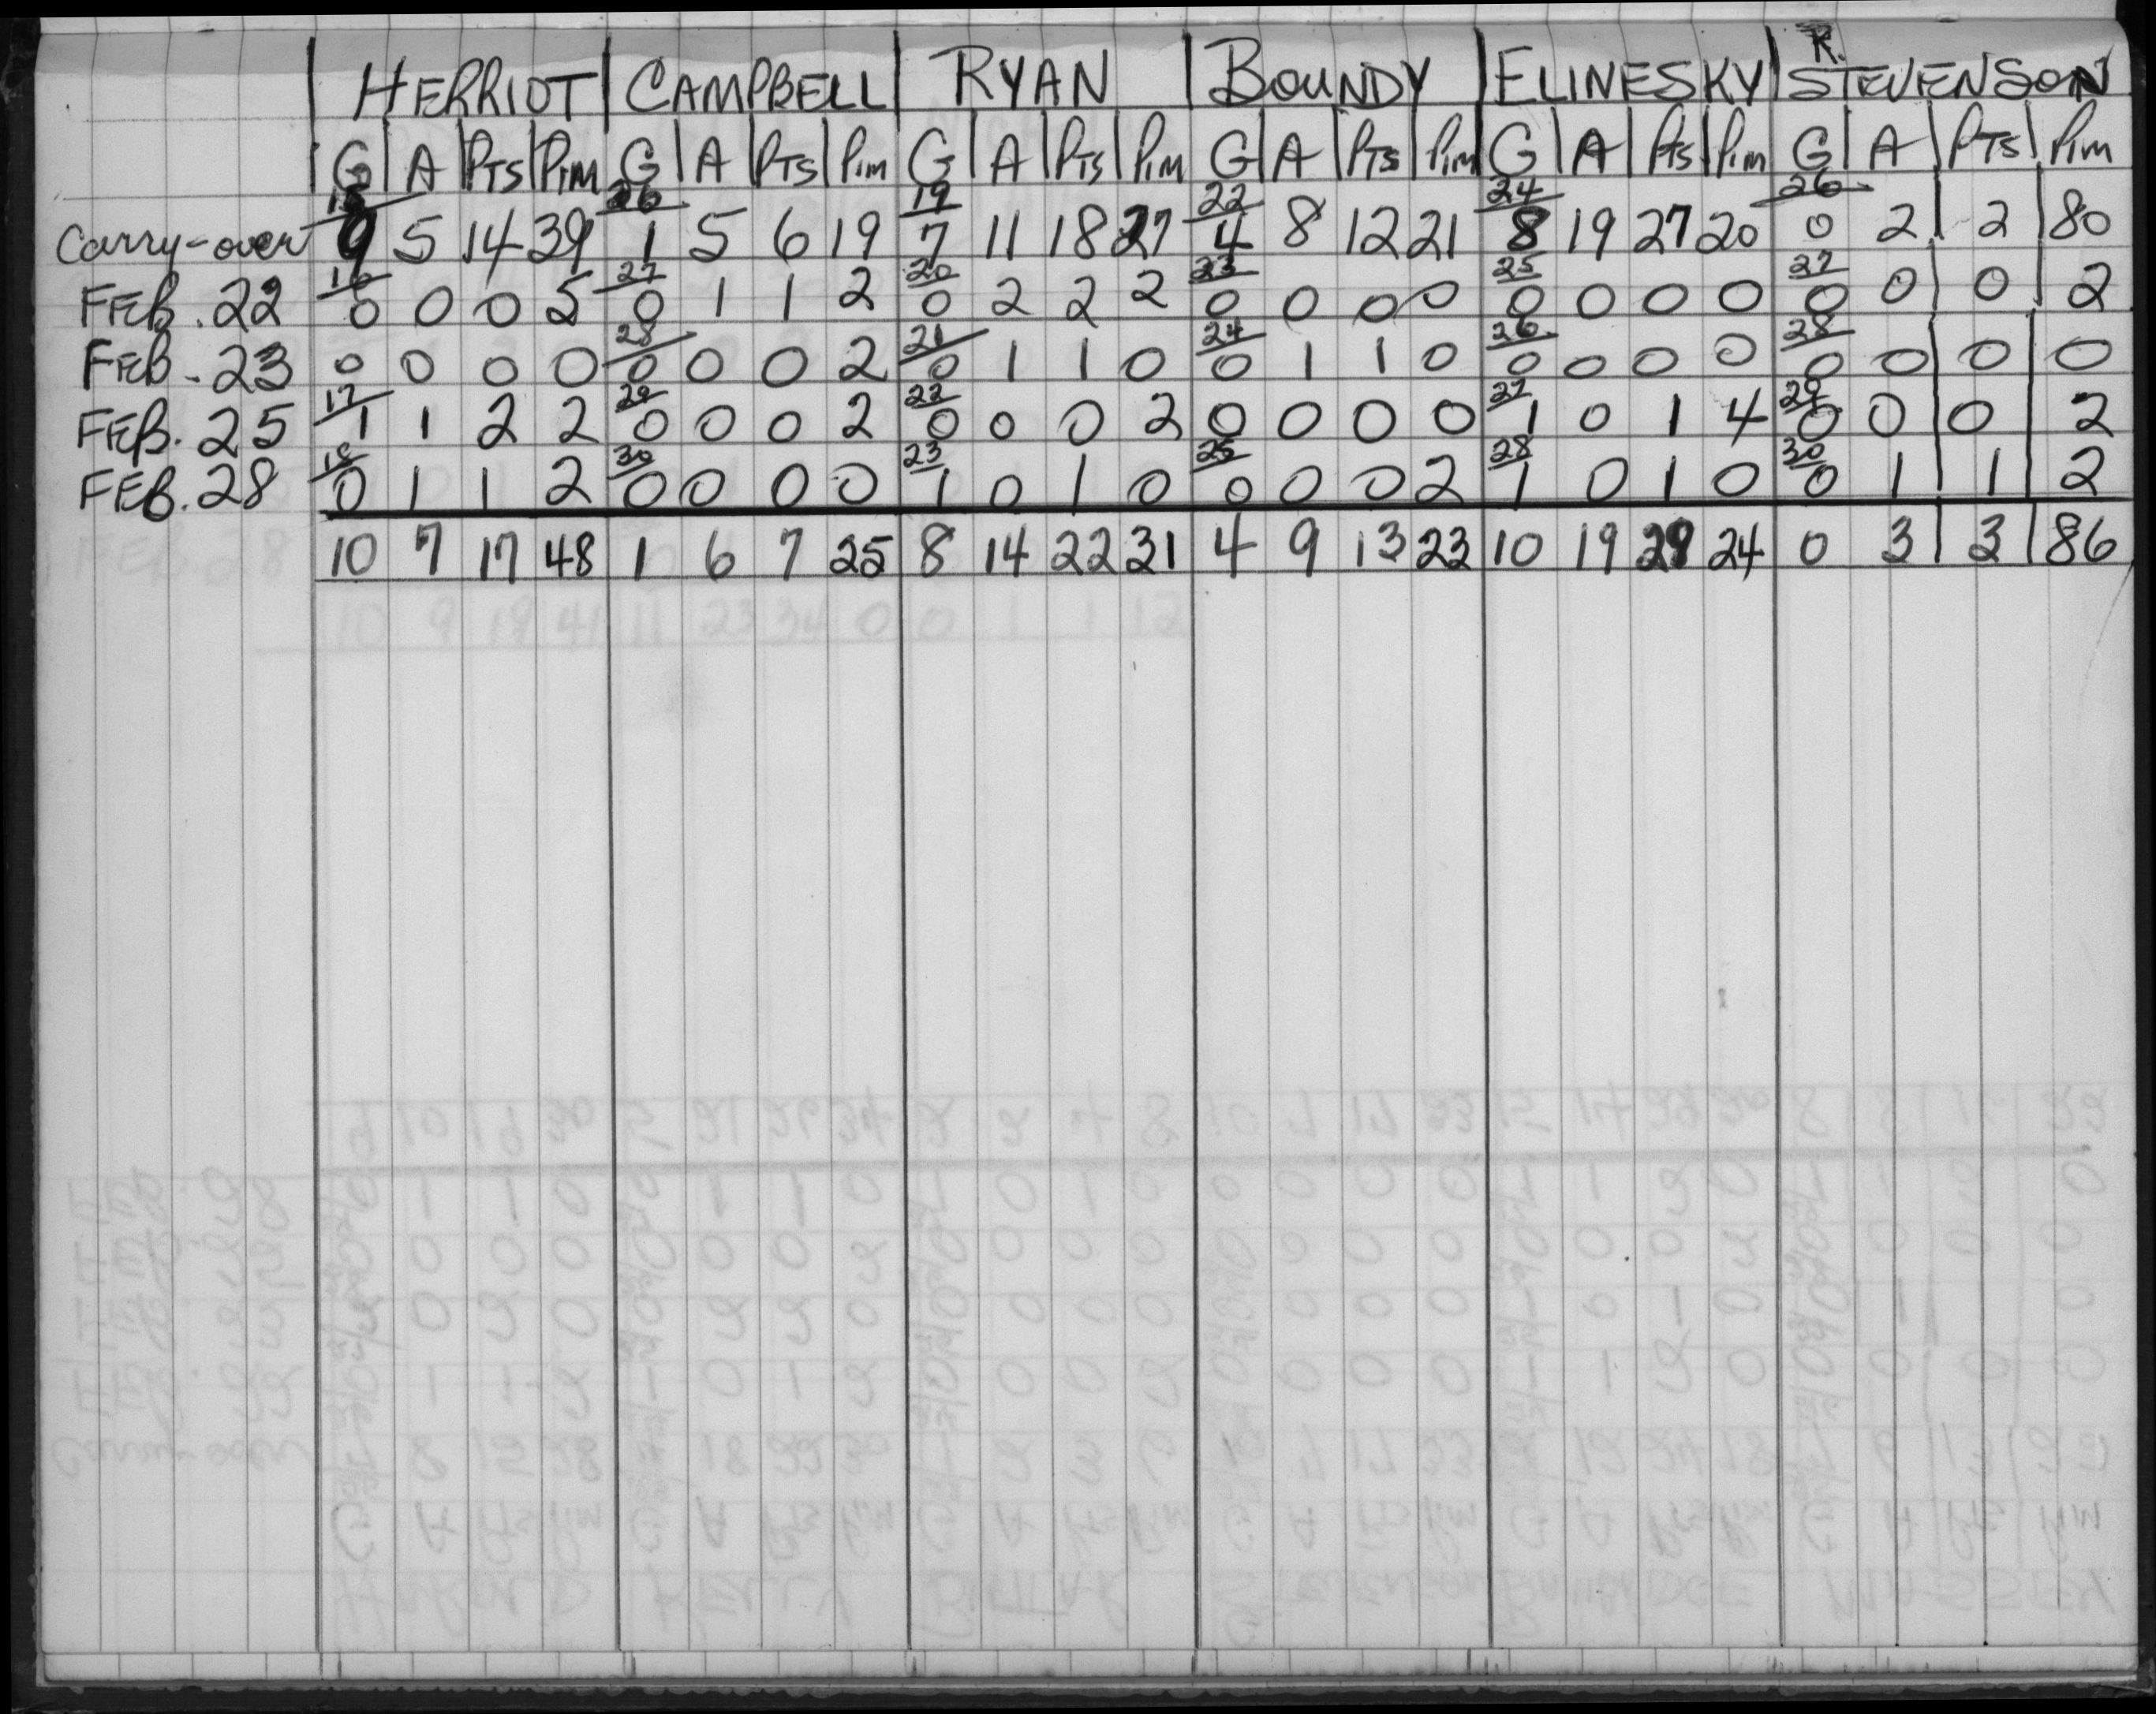 HERRIOT CAMPBELL RYAN BOUNDY ELINESKY R. STEVENSON
G A PTS PIM G A PTS PIM G A PTS PIM G A PTS PIM G A PTS PIM G A PTS PIM
15 26 19 22 24 26
Carry-over 9 5 14 39 1 5 6 19 7 11 18 27 4 8 12 21 8 19 27 20 0 2 2 80
16 27 20 23 25 27
FEB. 22 0 0 0 5 0 1 1 2 0 2 2 2 0 0 0 0 0 0 0 0 0 0 0 2
28 21 24 26 28
FEB. 23 0 0 0 0 0 0 0 2 0 1 1 0 0 1 1 0 0 0 0 0 0 0 0 0
17 29 22 27 29
FEB. 25 1 1 2 2 0 0 0 2 0 0 0 2 0 0 0 0 1 0 1 4 0 0 0 2
18 30 23 25 28 30
FEB. 28 0 1 1 2 0 0 0 0 1 0 1 0 0 0 0 2 1 0 1 0 0 1 1 2
10 7 17 48 1 6 7 25 8 14 22 31 4 9 13 23 10 19 29 24 0 3 3 86